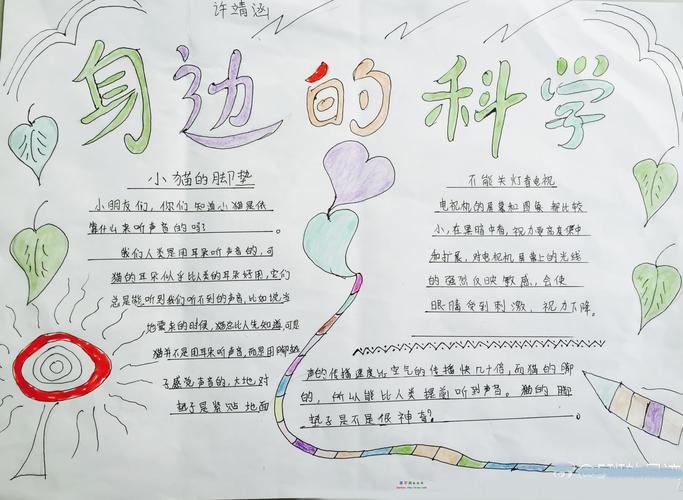 许靖涵
身边的科学
小猫的脚垫
小朋友们，你们知道小猫是依
靠什么来听声音的吗？。
我们人类是用耳朵听声音的，可
猫的耳朵似乎比人类的耳朵好用，它们
总是能听到我们听不到的声音，比如说当
地震来的时候，猫总比人先知道，可是
猫并不是用耳朵听声音，而是用脚垫
子感受声音的，大地，对
垫子是紧贴地面
不能关灯看电视
电视机的屏幕和图象都比较
小，在黑暗中看，视力要高度集中
和扩展，对电视机屏幕上的光线
的强烈反映敏感，会使
眼睛受到刺激，视力下降。
声的传播速度比空气的传播快几十倍，而猫的脚
的，所以能比人类提前听到声音。猫的脚
垫子是不是很神奇？